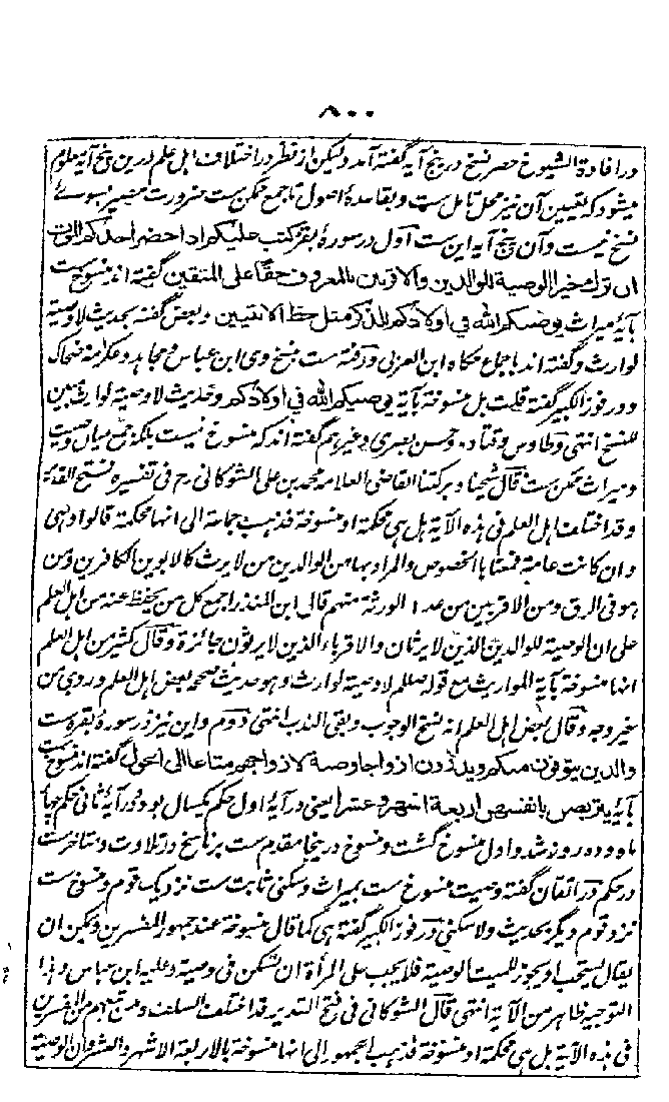 ۸۰۰
در افادة الشیوخ حصر نسخ در پنج آیه گفته آمد ولیکن از نظر در اختلاف اہل علم درین پنج آیه معلوم
میشود که تعیین آن نیز محل تامل ست و بقاعدۂ اصول تا جمع ممکن ست ضرورت مصیر بسوے
نسخ نیست و آن پنج آیه این ست آول در سورۂ بقر کتب علیکم اذا حضر احدکم الموت
ان ترك خیرا الوصیة للوالدین والاقربین بالمعروف حقا علی المتقین گفته اند منسوخ ست
بآیۂ میراث یوصیکم الله في اولادکم للذکر مثل حظ الانثیین و بعض گفته بحدیث لا وصیة
لوارث و گفته اند باجماع حکاه ابن العربی و رفته ست بنسخ وی ابن عباس و مجاہد و عکرمه و ضحاک
و در فوز الکبیر گفته قلت بل منسوخة بآیة یوصیکم الله في اولادکم و حدیث لا وصیة لوارث مبین
للنسخ انتهی و طاوس و قتاده و حسن بصری و غیرہم گفته اند که منسوخ نیست بلکه جمع میان وصیت
و میراث ممکن ست قال شیخنا و برکتنا القاضی العلامة محمد بن علی الشوکانی رح فی تفسیره فتح القدیر
و قد اختلف اہل العلم فی ہذه الآیة ہل ہی محکمة او منسوخة فذہب جماعة الی انہا محکمة قالوا و ہی
و ان کانت عامة فمعناہا الخصوص و المراد بہا من الوالدین من لا یرث کالابوین الکافرین و من
ہو فی الرق و من الاقربین من عدا الورثة منہم قال ابن المنذر اجمع کل من یحفظ عنه من اہل العلم
علی ان الوصیة للوالدین الذین لا یرثان و الاقرباء الذین لا یرثون جائزة و قال کثیر من اہل العلم
انہا منسوخة بآیة المواریث مع قوله صلعم لا وصیة لوارث و ہو حدیث صححه بعض اہل العلم و روی من
غیر وجه و قال بعض اہل العلم انه نسخ الوجوب و بقی الندب انتهی دوم و این نیز در سورۂ بقره ست
والذین یتوفون منکم ویذرون ازواجا وصیة لازواجهم متاعا الی الحول گفته اند منسوخ ست
بآیۂ یتربصن بانفسهن اربعة اشهر و عشرا یعنی در آیۂ اول حکم یکسال بود و در آیۂ ثانی حکم چهار
ماه و ده روز شد و اول منسوخ گشت و منسوخ درینجا مقدم ست بر ناسخ در تلاوت و متاخر ست
در حکم در اتقان گفته وصیت منسوخ ست بمیراث و سکنی ثابت ست نزدیک قوم و منسوخ ست
نزد قوم دیگر بحدیث و لا سکنی و در فوز الکبیر گفته ہی کما قال منسوخة عند جمہور المفسرین و یمکن ان
یقال یستحب او یجوز للمیت الوصیة فلا یجب علی المرأة ان تسکن فی وصیة و علیه ابن عباس و ہذا
التوجیه ظاہر من الآیة انتهی قال الشوکانی فی فتح القدیر قد اختلف السلف و من تبعہم من المفسرین
فی ہذه الآیة ہل ہی محکمة او منسوخة فذہب الجمہور الی انہا منسوخة بالاربعة الاشہر و العشر و ان الوصیة